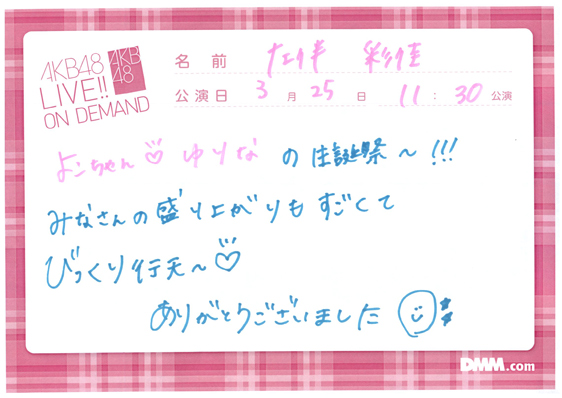 AKB48
LIVE!!
ON DEMAND
AKB
48
名前 左伴 彩佳
公演日 3月25日 11:30公演
よこちゃん♡ ゆりな の生誕祭〜!!!
みなさんの盛り上がりもすごくて
びっくり行天〜♡
ありがとうございました
DMM.com